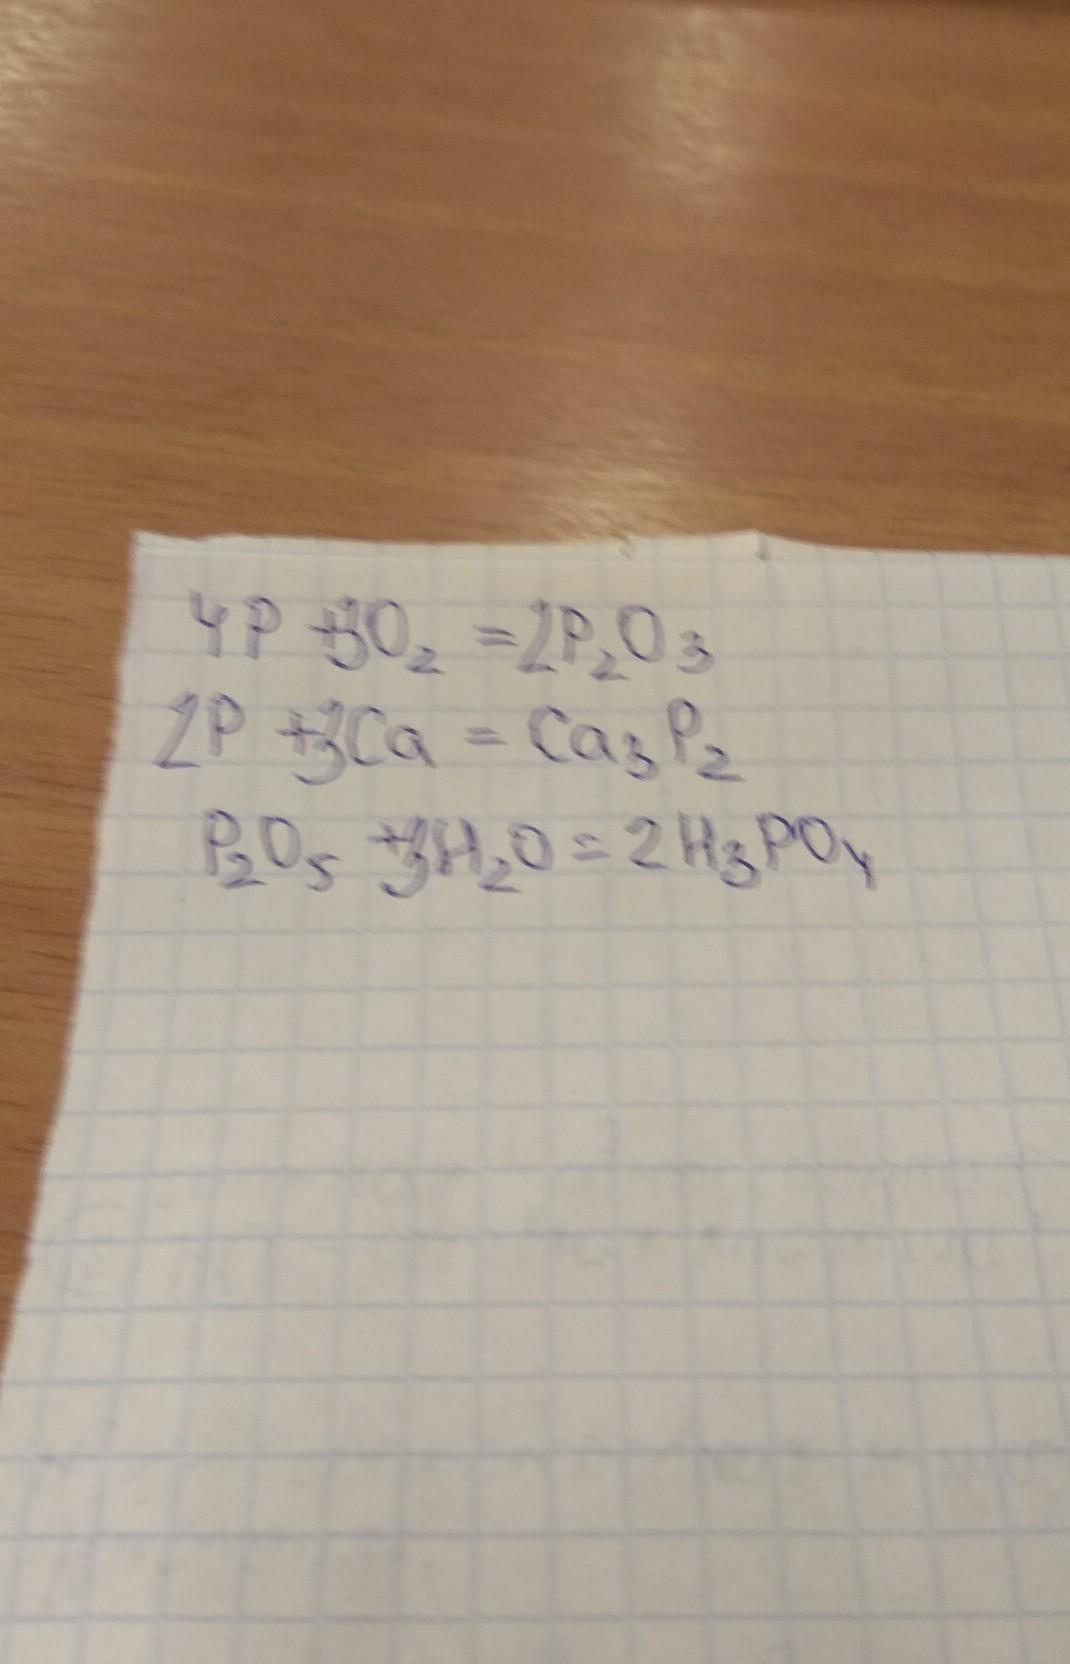 4P + 3O₂ = 2P₂O₃
2P + 3Ca = Ca₃P₂
P₂O₅ + 3H₂O = 2H₃PO₄